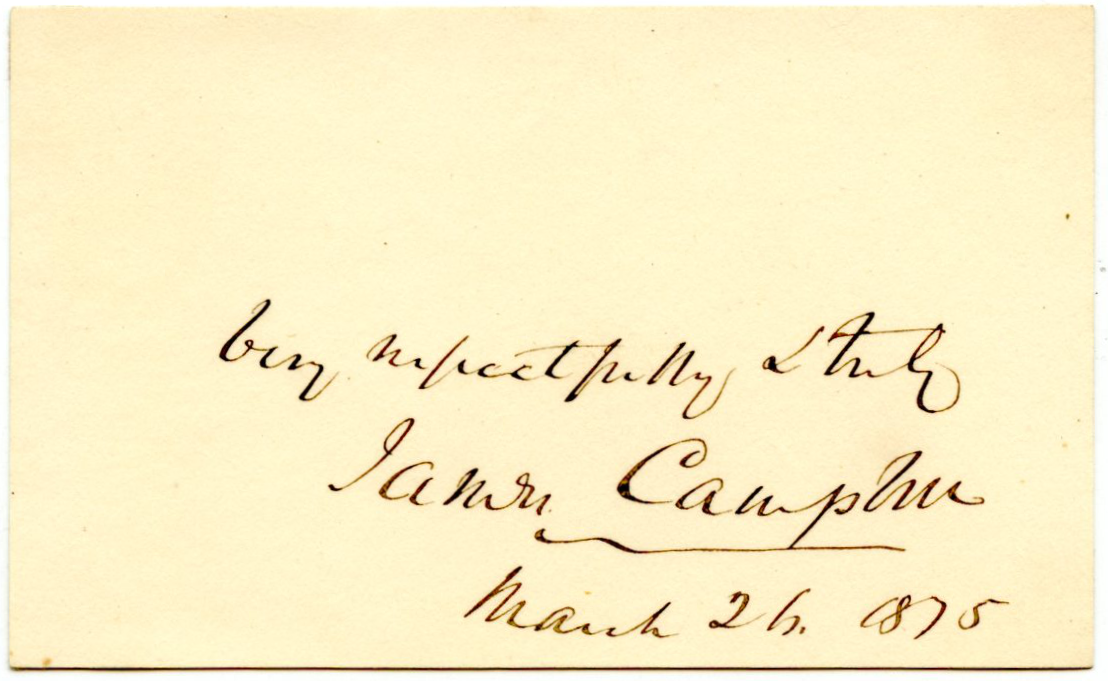 Very respectfully & truly
James Campbell
March 26. 1875